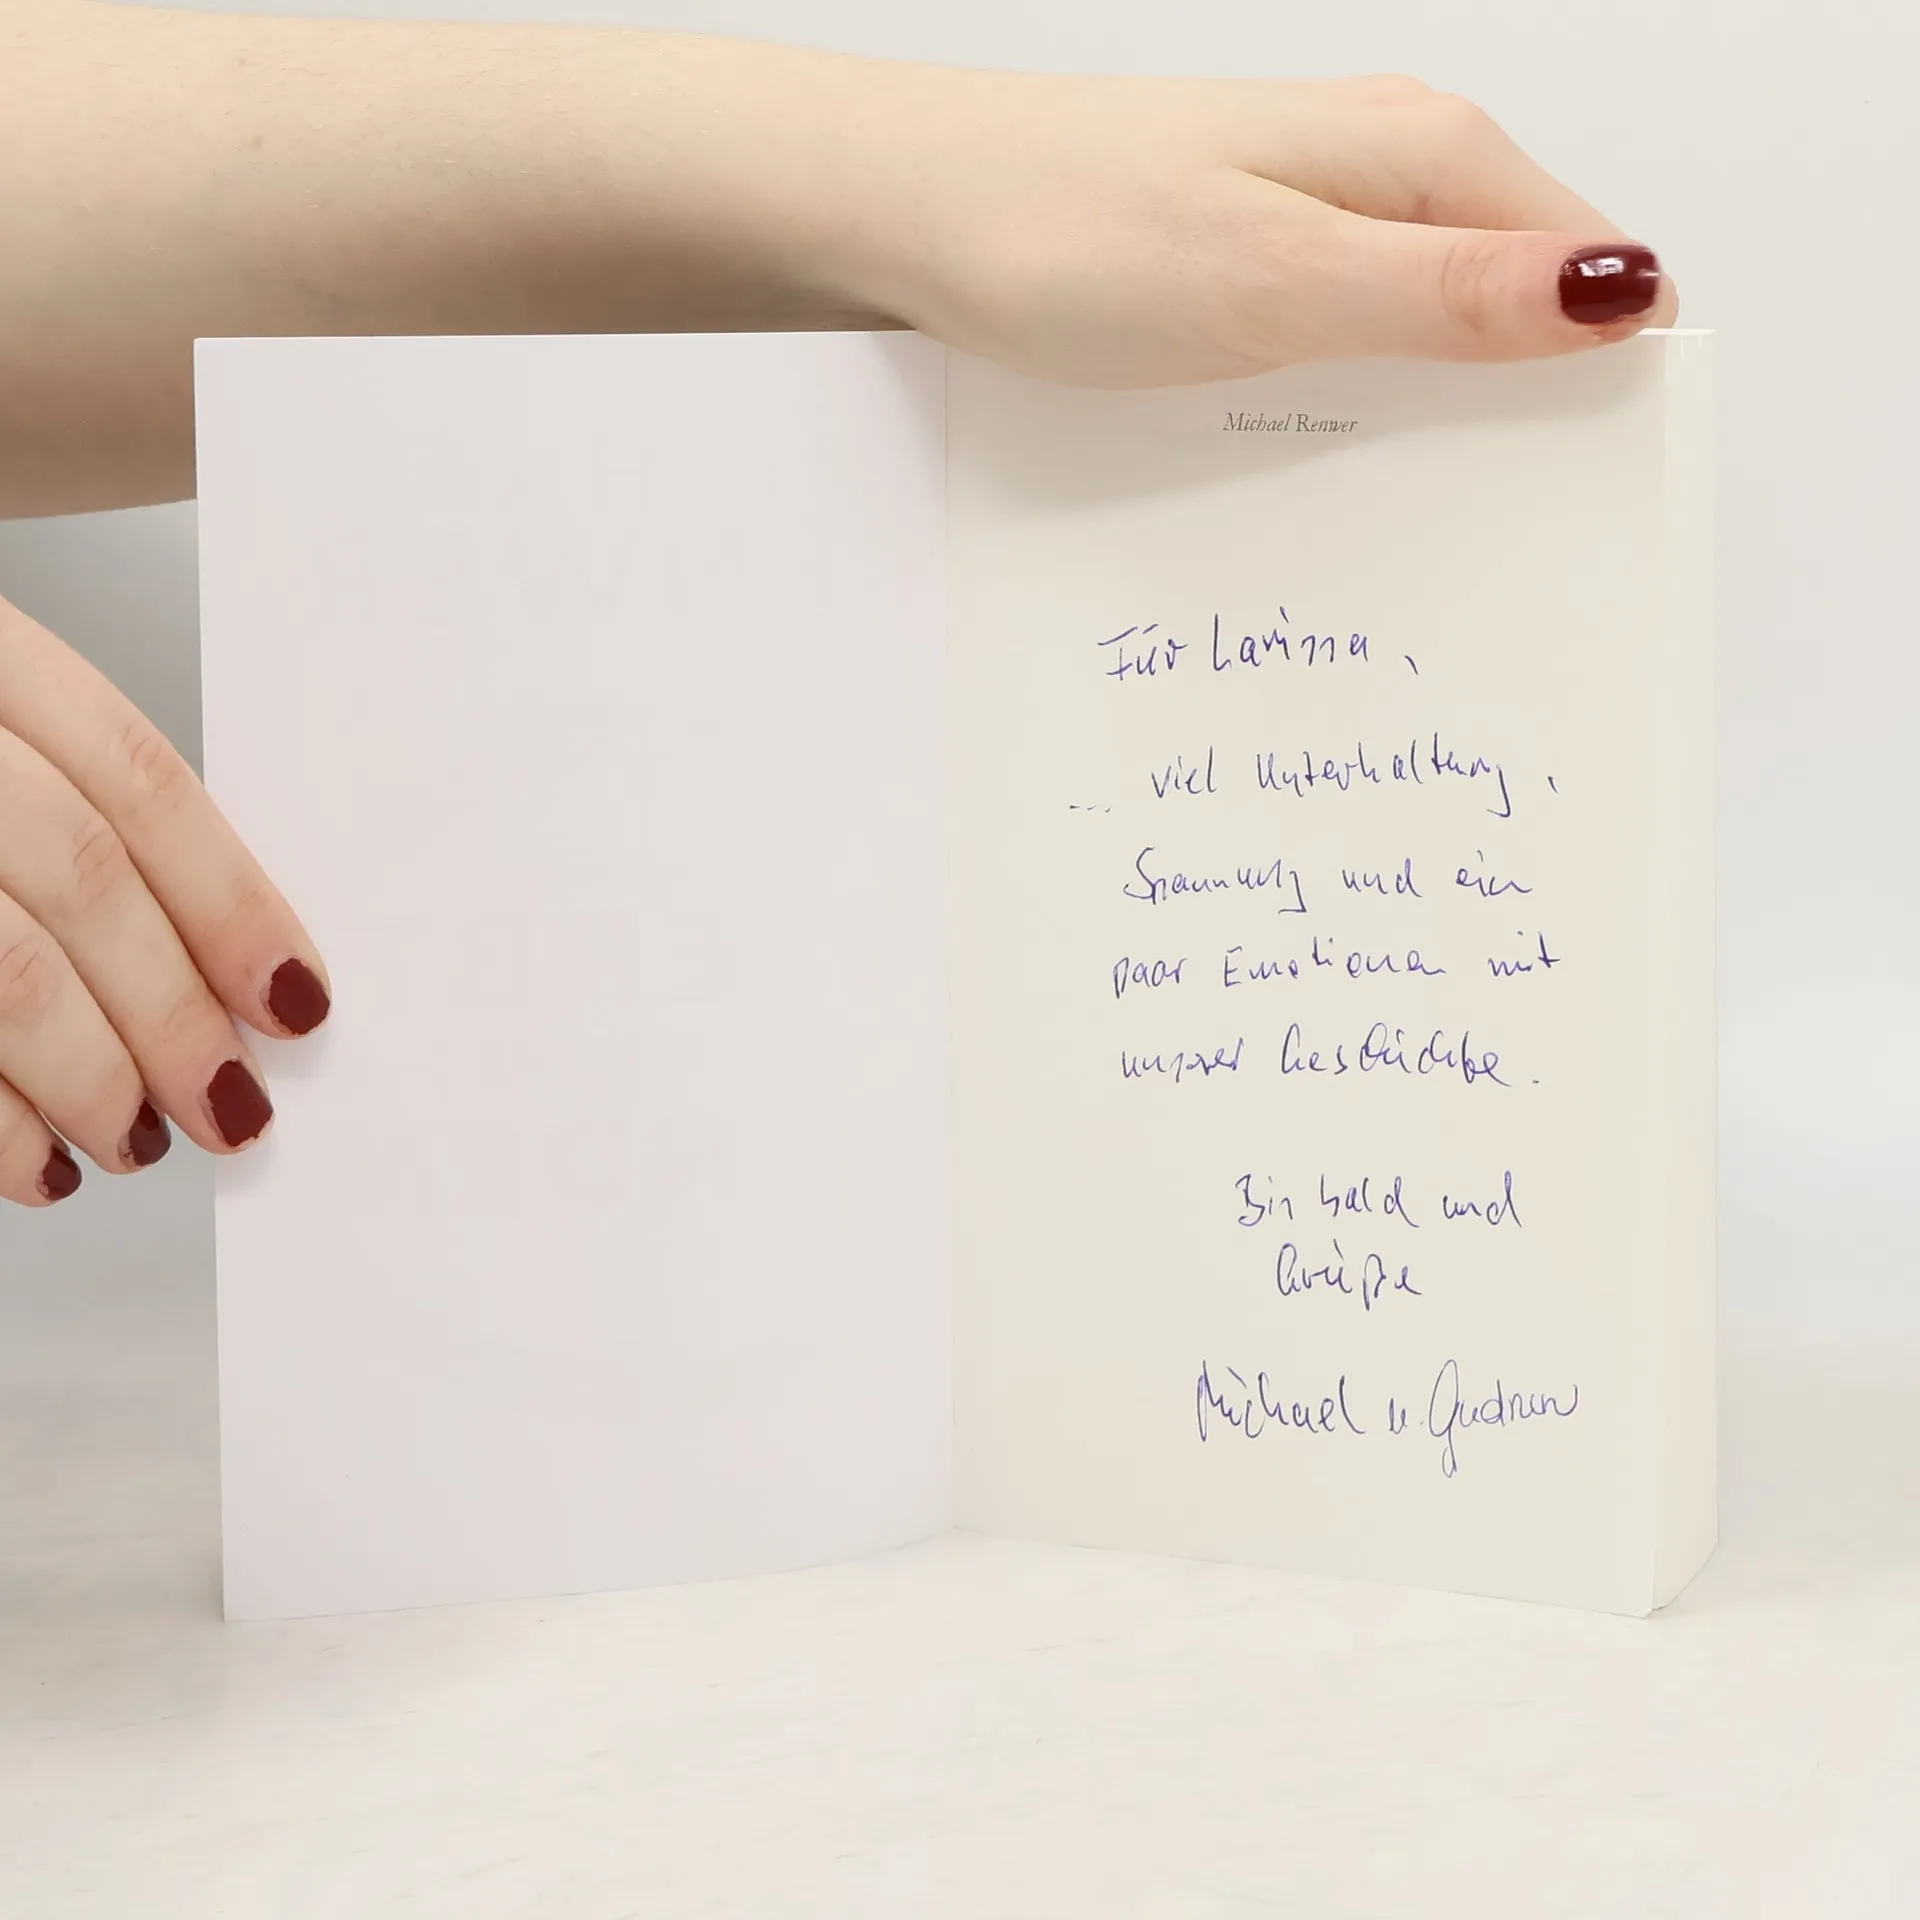 Michael Renwer
Für Larissa,
... viel Unterhaltung,
Spannung und ein
paar Emotionen mit
unserer Geschichte.
Bis bald und
Grüße
Michael u. Gudrun